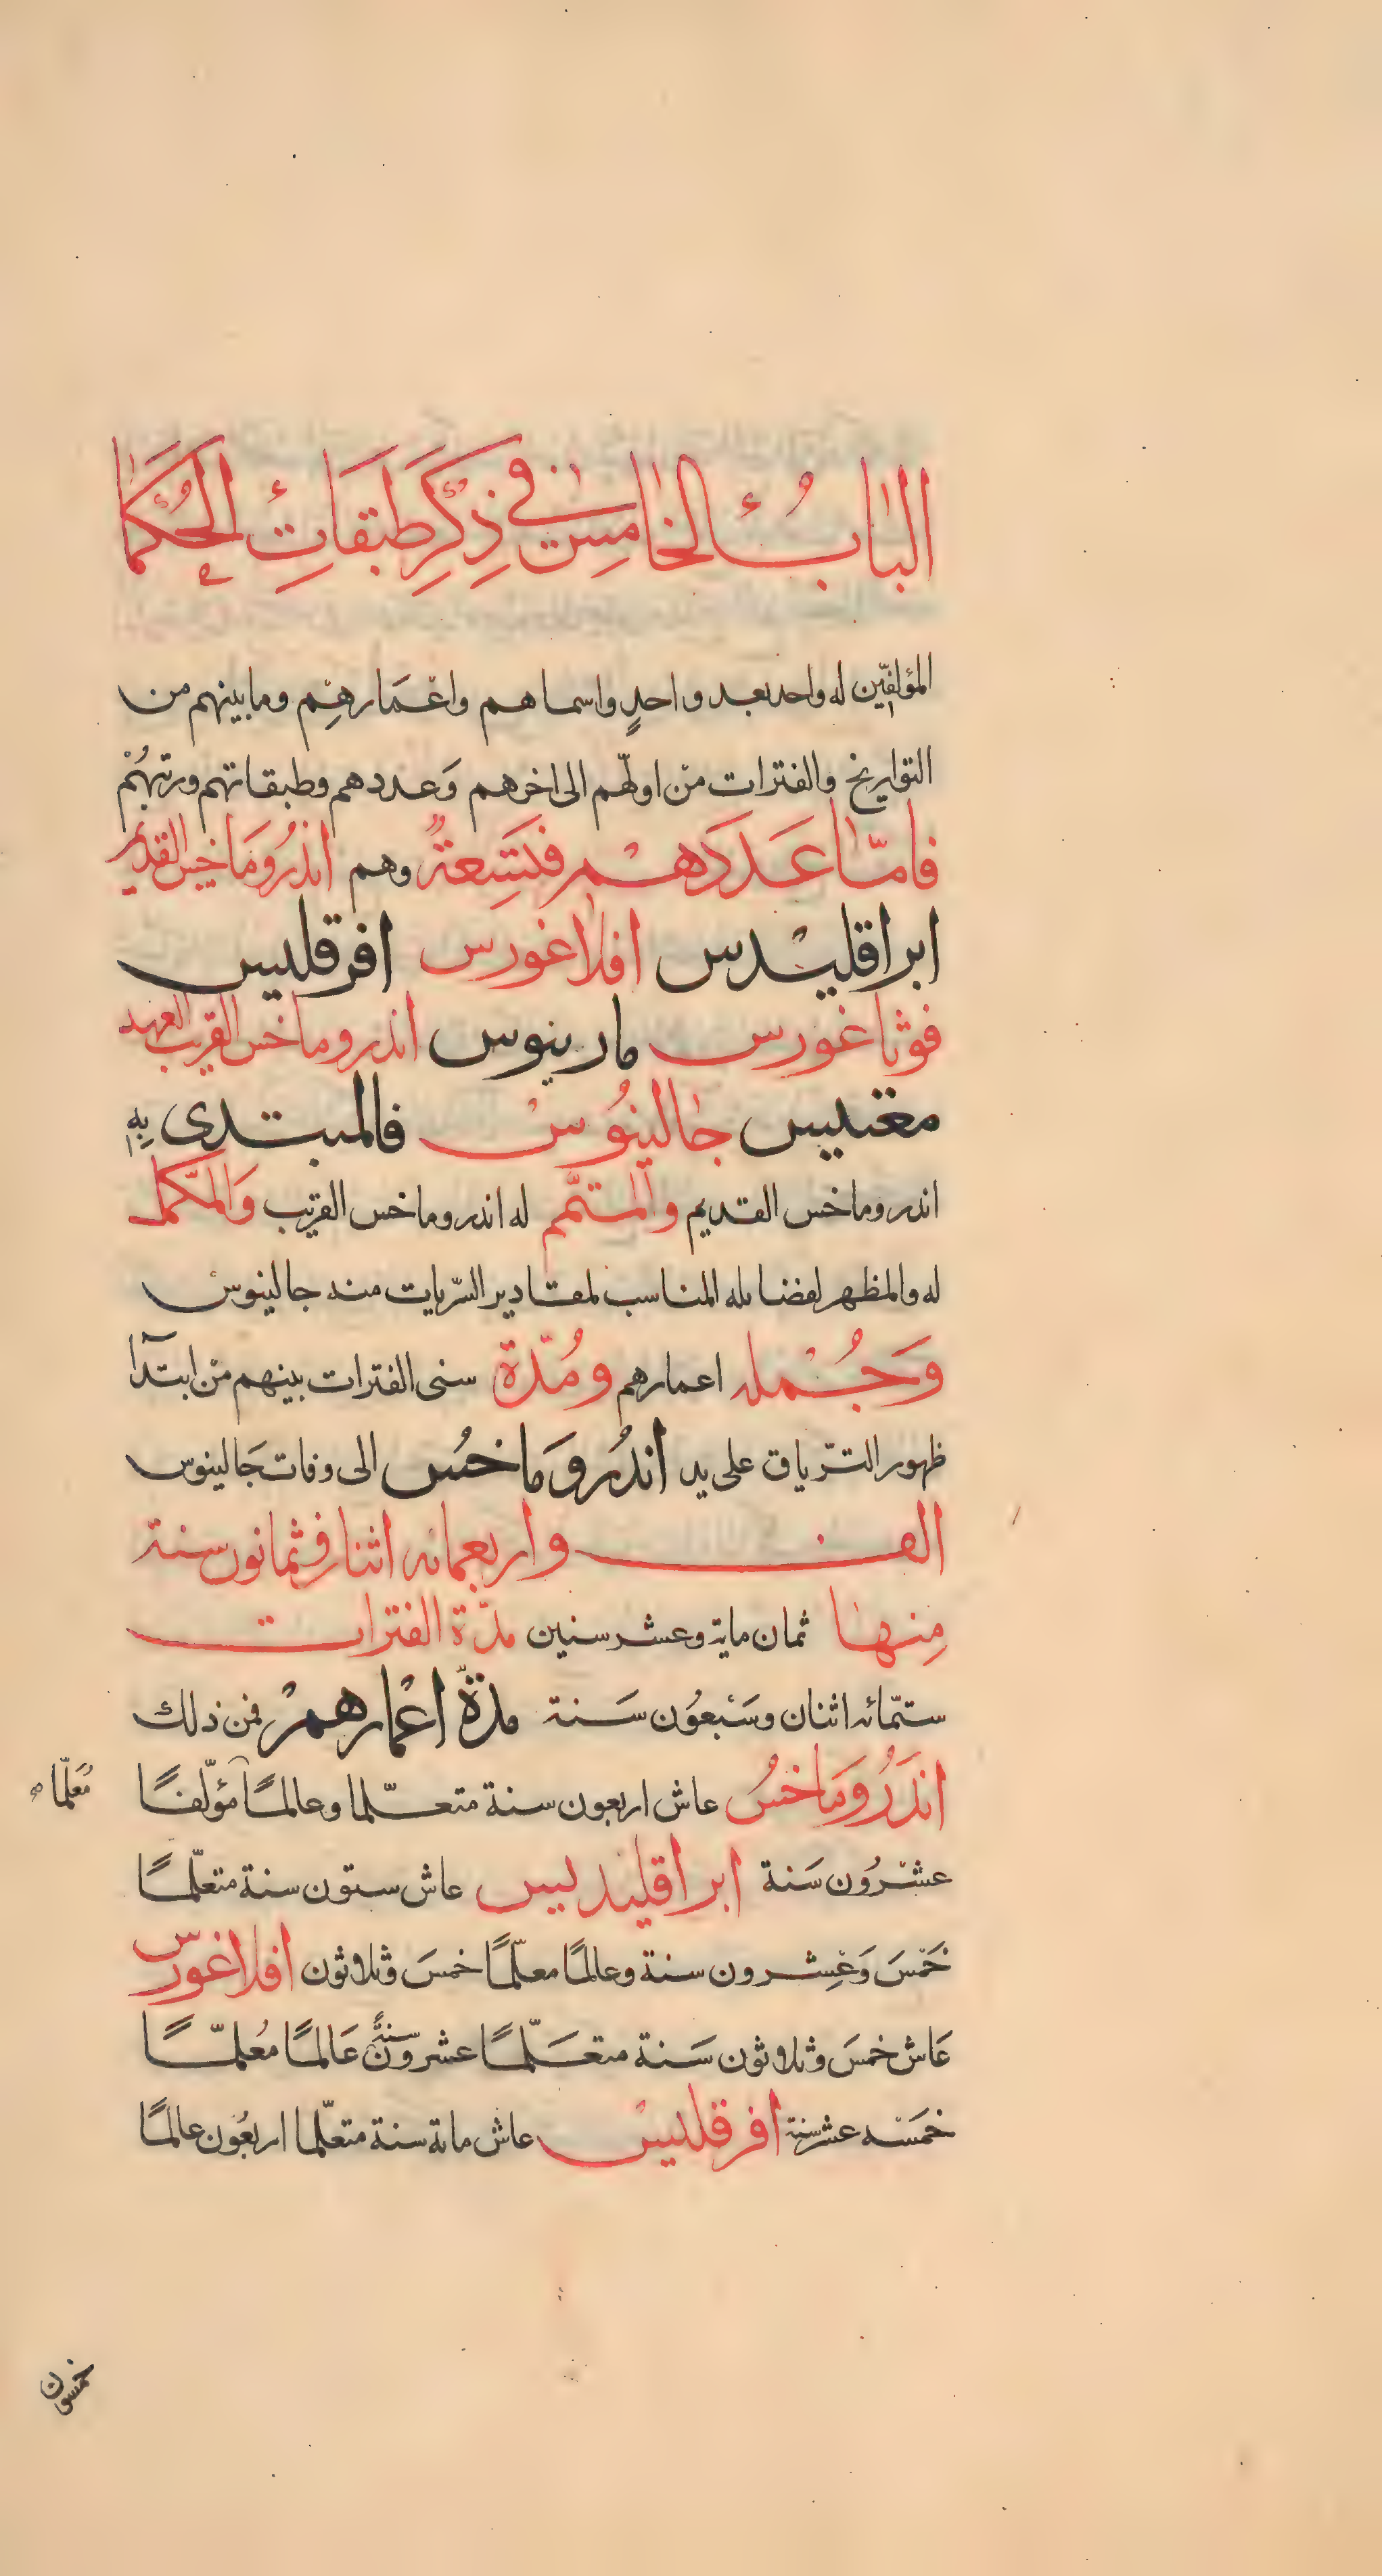 البَابُ الخامِسُ في ذِكْرِ طَبَقَاتِ الحُكَمَا
المؤلفّين له واحد بعد واحدٍ واسماهم واعْمَارهِم وما بينهم من
التواريخ والفترات منْ اولّهم الى اخرهم وَعددهم وطبقاتهم ورتبهُمْ
فامّا عَدَدَهمْ فَتِسعةٌ وهم اندرُومَاخس القديم
ابراقليدس افلاغورس افرقليس
فوثاغورس مارينوس اندروماخس القريب العهد
مغنيس جالينُوسْ فالمبتدى بِهِ
اندروماخس القديم والمتمّم له اندروماخس القريب وَالمكّمل
له والمظهر لفضايله المناسب لمقادير السّريات منه جالينوس
وَجُمْله اعمارهم ومُدّة سنى الفترات بينهم منْ ابتدآ
ظهور التّرياق على يد اندُرومَاخسُ الى وفات جَالينوس
الف واربعمائه اثنان وثمانون سنة
مِنها ثمان ماية وعشر سنين مدّة الفترات
ستّمائه اثنان وسَبْعوُن سَنة مدّة اعْمارهمْ فمن ذلك
اندَرُومَاخسُ عاش اربعون سنة متعلّما وعالمًا مؤلّفًا
مُعلّما صح
عشْرُون سَنة ابراقليديس عاش ستون سنة متعلّمًا
خَمْسَ وَعِشرون سنة وعالمًا معلّمًا خمسَ وثلاوثون افلاغورس
عَاش خمسَ وثلاوثون سَنة متعَلّمًا عشرون سنةً عَالمًا مُعلمّا
خمَسْه عشر سنة افرقليسْ عاش ماية سنة متعلّما اربعُون عالمًا
خمسون